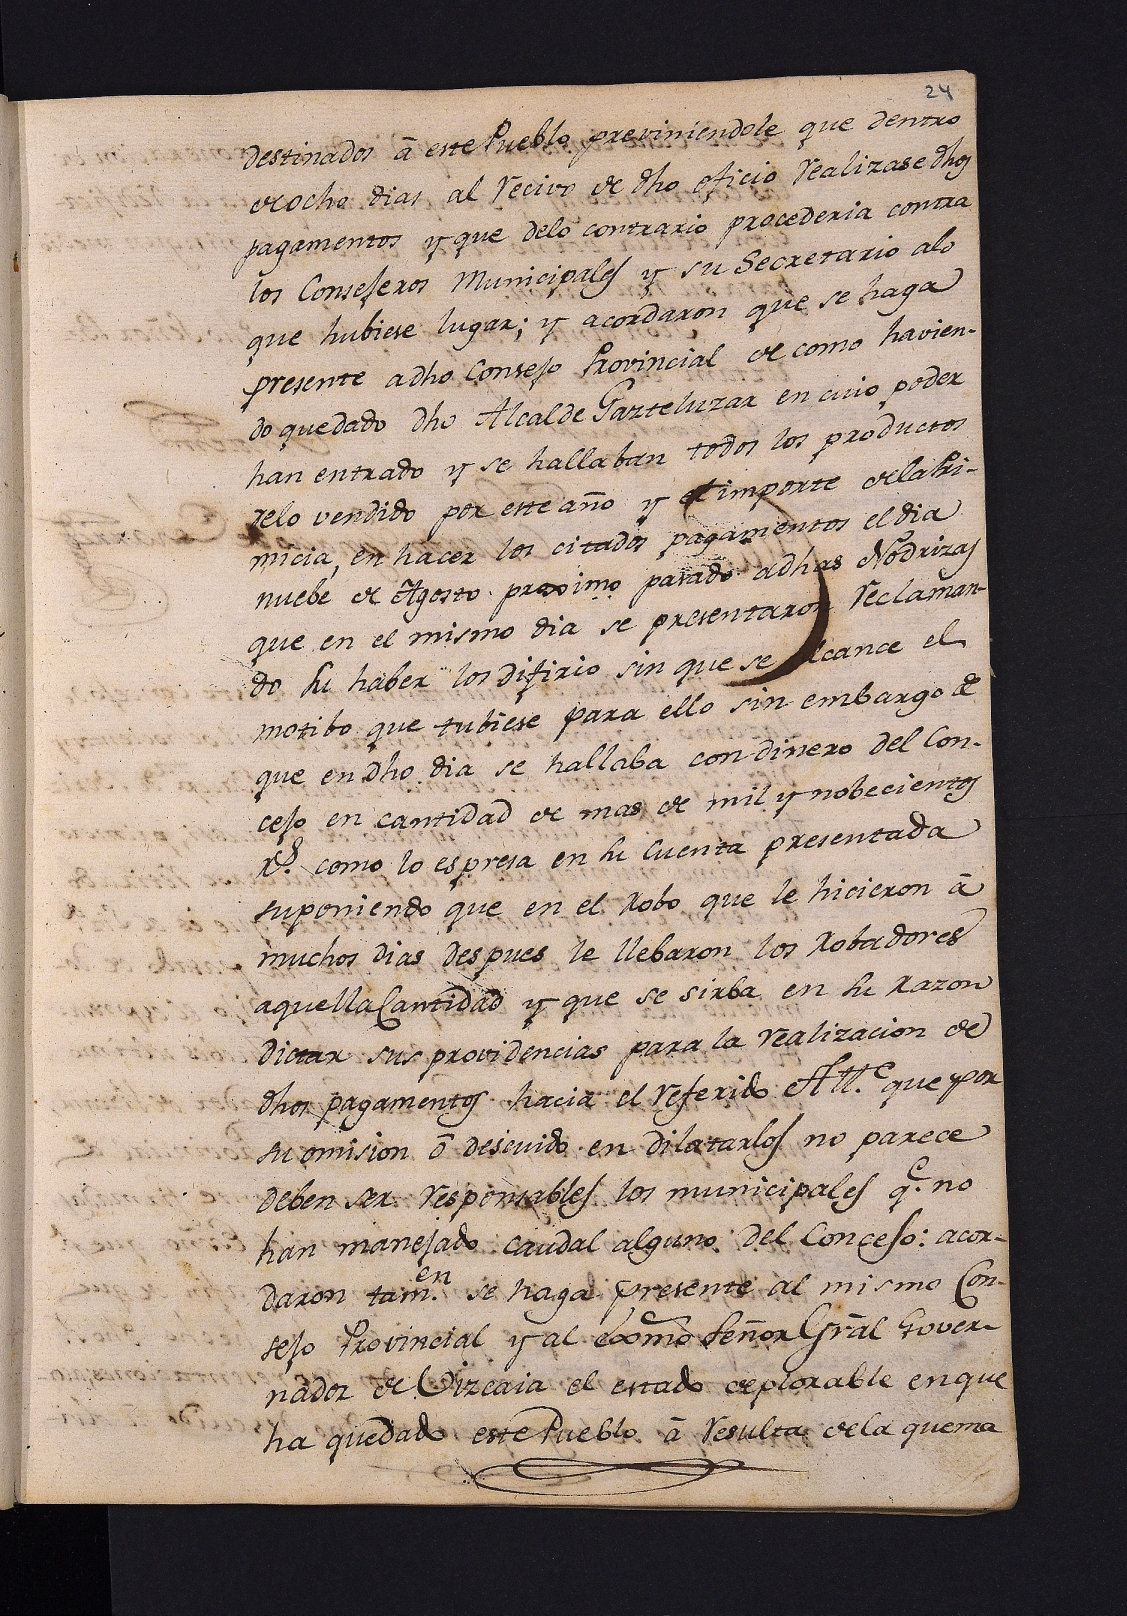 24
destinados â este Pueblo previniendole que dentro
de ocho dias al recivo de dho oficio realizase dhos
pagamentos y que delo contrario procederia contra
los Consejeros Municipales y su Secretario alo
que hubiese lugar; y acordaron que se haga
presente adho Consejo Provincial de como havien-
do quedado dho Alcalde Gazteluzar en cuio poder
han entrado y se hallaban todos los productos
delo vendido por este año y el importe dela Pri-
micia, en hacer los citados pagamentos el dia
nuebe de Agosto proximo pasado adhas Nodrizas
que en el mismo dia se presentaron reclaman-
do su haber los difirio sin que se alcance el
motibo que tubiese para ello sin embargo de
que en dho dia se hallaba con dinero del Con-
cejo en cantidad de mas de mil y nobecientos
rs. como lo espresa en su cuenta presentada
suponiendo que en el Robo que le hicieron â
muchos dias despues le llebaron los Robadores
aquella Cantidad y que se sirba en su razon
dictar sus providencias para la realizacion de
dhos pagamentos hacia el referido Alle. que por
su omision ô descuido en dilatarlos no parece
deben ser responsables los municipales qe. no
han manejado caudal alguno del Concejo: acor-
daron tamen. se haga presente al mismo Con-
sejo Provincial y al Exomo Señor Grâl Gover-
nador de Vizcaia el estado deplorable enque
ha quedado este Pueblo â resulta dela quema